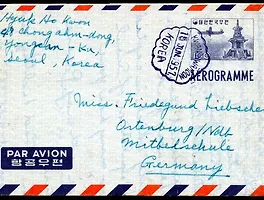 Hyuk Ho Kwon
Chongahm-dong,
Yongsan-Ku,
Seoul, Korea
대한민국우편
18 JUN. 957
KOREA
AEROGRAMME
Miss. Friedegund Liebscher
Ortenburg/Ndb
Mittelschule
Germany
PAR AVION
항공우편